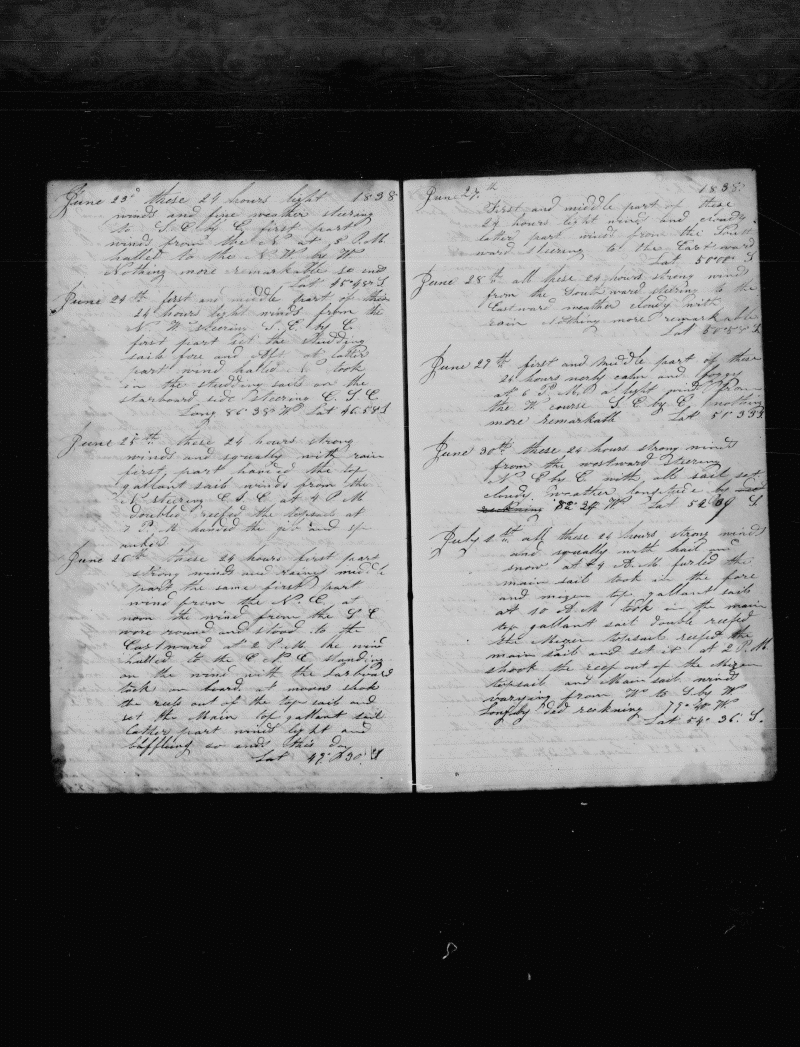 June 23d these 24 hours light 1838
winds and fine weather steering
to S.E. by E. first part
winds from the N. at 8 P.M.
halled to the N.W. by W
Nothing more remarkable so ends
Lat 45°48' S
June 24th first and middle part of these
24 hours light winds from the
N. W. steering S.E. by E.
first part set the studding
sails fore and Aft at latter
part wind halled N took
in the studding sails on the
starboard side steering E.S.E
Long 86°38 W Lat 46.58 S
June 25th these 24 hours strong
winds and squally with rain
first part handed the top
gallant sail winds from the
N. steering E.S.E at 4 P.M
doubled reefed the topsails at
P.M handed the gib and sp
anker
June 26th these 24 hours first part
strong winds and rainy middle
part the same first part
wind from the N.E. at
noon the wind from the S E
wore round and stood to the
Eastward at 2 P.M. the wind
halled to the E N E standing
on the wind with the larboard
tack on board at moon shook
the reefs out of the top sail and
set the Main top gallant sail
latter part winds light and
baffling so ends this day
Lat 49° 30' S
June 27th 1838
First and middle part of these
24 hours light winds and cloudy
latter part winds from the South
ward steering to the Eastward
Lat 50°00' S
June 28th all these 24 hours strong winds
from the Southward steering to the
Eastward weather cloudy with
rain Nothing more remarkable
Lat S
June 29th first and middle part of these
24 hours nerly calm and foggy
at 6 P.M. a light wind from
the W course S.E. by E. nothing
more remarkable Lat 51°33 S
June 30th these 24 hours strong winds
from the westward steering
N.E by E with all sail set
cloudy weather longitude by ded
reckning 82°29 W Lat 52°09 S.
July 1th all these 24 hours strong winds
and squally with hail and
snow at 4 A.M furled the
main sail took in the fore
and mizen top gallant sails
at 10 A.M took in the main
top gallant sail double reefed
the Mizen topsail reefed the
main sail and set it at 2 P.M
shook the reef out of the Mizen
topsail and Main sail wind
varying from W to S by W
Long by ded reckning 79°40 W
Lat 54° 36' S.